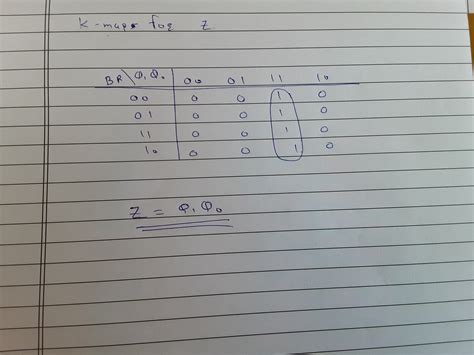 K-maps for Z
BR\Q₁Q₀ 00 01 11 10
00 0 0 1 0
01 0 0 1 0
11 0 0 1 0
10 0 0 1 0
Z = Q₁Q₀